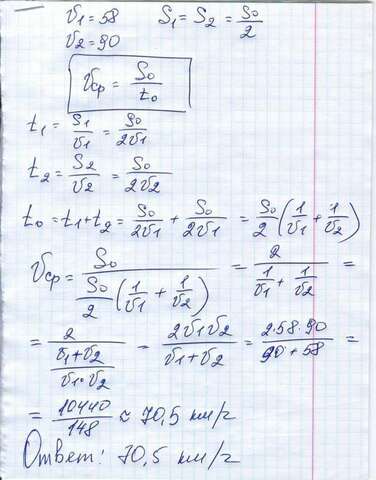 υ₁ = 58 S₁ = S₂ = S₀/2
υ₂ = 90
υср = S₀/t₀
t₁ = S₁/υ₁ = S₀/2υ₁
t₂ = S₂/υ₂ = S₀/2υ₂
t₀ = t₁ + t₂ = S₀/2υ₁ + S₀/2υ₁ = S₀/2 (1/υ₁ + 1/υ₂)
υср = S₀/(S₀/2 (1/υ₁ + 1/υ₂)) = 2/(1/υ₁ + 1/υ₂) =
= 2/((υ₁ + υ₂)/(υ₁·υ₂)) = 2υ₁υ₂/(υ₁ + υ₂) = 2·58·90/(90 + 58) =
= 10440/148 ≈ 70,5 км/г
Ответ: 70,5 км/г